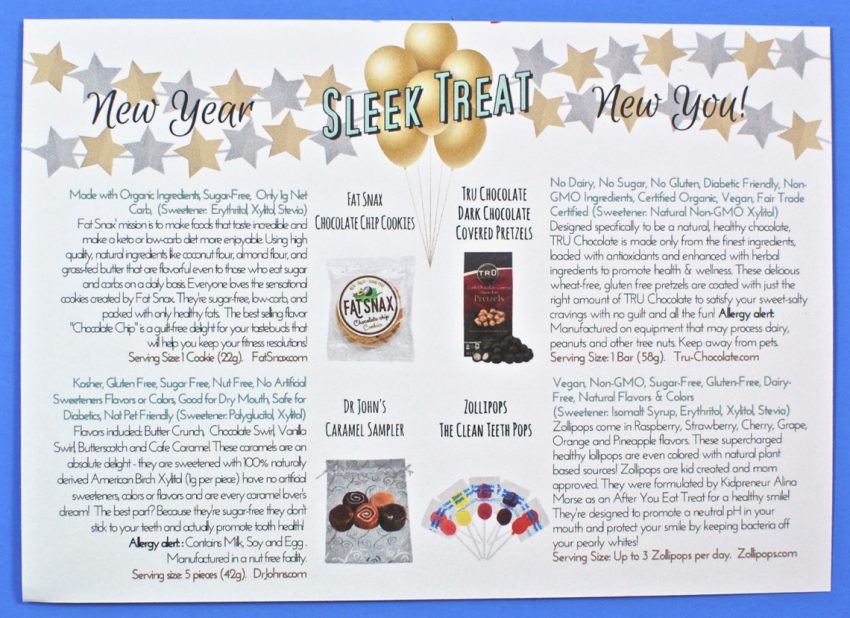 New Year
SLEEK TREAT
New You!
Made with Organic Ingredients, Sugar-Free, Only 1g Net
Carb, (Sweetener: Erythritol, Xylitol, Stevia)
Fat Snax' mission is to make foods that taste incredible and
make a keto or low-carb diet more enjoyable. Using high
quality, natural ingredients like coconut flour, almond flour, and
grass-fed butter that are flavorful even to those who eat sugar
and carbs on a daily basis. Everyone loves the sensational
cookies created by Fat Snax. They're sugar-free, low-carb, and
packed with only healthy fats. The best selling flavor
"Chocolate Chip" is a guilt-free delight for your tastebuds that
will help you keep your fitness resolutions!
Serving Size: 1 Cookie (22g). FatSnax.com
FAT SNAX
CHOCOLATE CHIP COOKIES
FATSNAX
Chocolate chip
Cookies
TRU CHOCOLATE
DARK CHOCOLATE
COVERED PRETZELS
TRU
Pretzels
No Dairy, No Sugar, No Gluten, Diabetic Friendly, Non-
GMO Ingredients, Certified Organic, Vegan, Fair Trade
Certified (Sweetener: Natural Non-GMO Xylitol)
Designed specifically to be a natural, healthy chocolate,
TRU Chocolate is made only from the finest ingredients,
loaded with antioxidants and enhanced with herbal
ingredients to promote health & wellness. These delicious
wheat-free, gluten free pretzels are coated with just the
right amount of TRU Chocolate to satisfy your sweet-salty
cravings with no guilt and all the fun! Allergy alert:
Manufactured on equipment that may process dairy,
peanuts and other tree nuts. Keep away from pets.
Serving Size: 1 Bar (58g). Tru-Chocolate.com
Kosher, Gluten Free, Sugar Free, Nut Free, No Artificial
Sweeteners Flavors or Colors, Good for Dry Mouth, Safe for
Diabetics, Not Pet Friendly (Sweetener: Polyglucitol, Xylitol)
Flavors included: Butter Crunch, Chocolate Swirl, Vanilla
Swirl, Butterscotch and Cafe Caramel These caramels are an
absolute delight - they are sweetened with 100% naturally
derived American Birch Xylitol (1g per piece) have no artificial
sweeteners, colors or flavors and are every caramel lover's
dream! The best part? Because they're sugar-free they don't
stick to your teeth and actually promote tooth health!
Allergy alert: : Contains Milk, Soy and Egg.
Manufactured in a nut free facility.
Serving size: 5 pieces (42g). DrJohns.com
DR JOHN'S
CARAMEL SAMPLER
ZOLLIPOPS
THE CLEAN TEETH POPS
Vegan, Non-GMO, Sugar-Free, Gluten-Free, Dairy-
Free, Natural Flavors & Colors
(Sweetener: Isomalt Syrup, Erythritol, Xylitol, Stevia)
Zollipops come in Raspberry, Strawberry, Cherry, Grape,
Orange and Pineapple flavors. These supercharged
healthy lollipops are even colored with natural plant
based sources! Zollipops are kid created and mom
approved. They were formulated by Kidpreneur Alina
Morse as an After You Eat Treat for a healthy smile!
They're designed to promote a neutral pH in your
mouth and protect your smile by keeping bacteria off
your pearly whites!
Serving Size: Up to 3 Zollipops per day. Zollipops.com